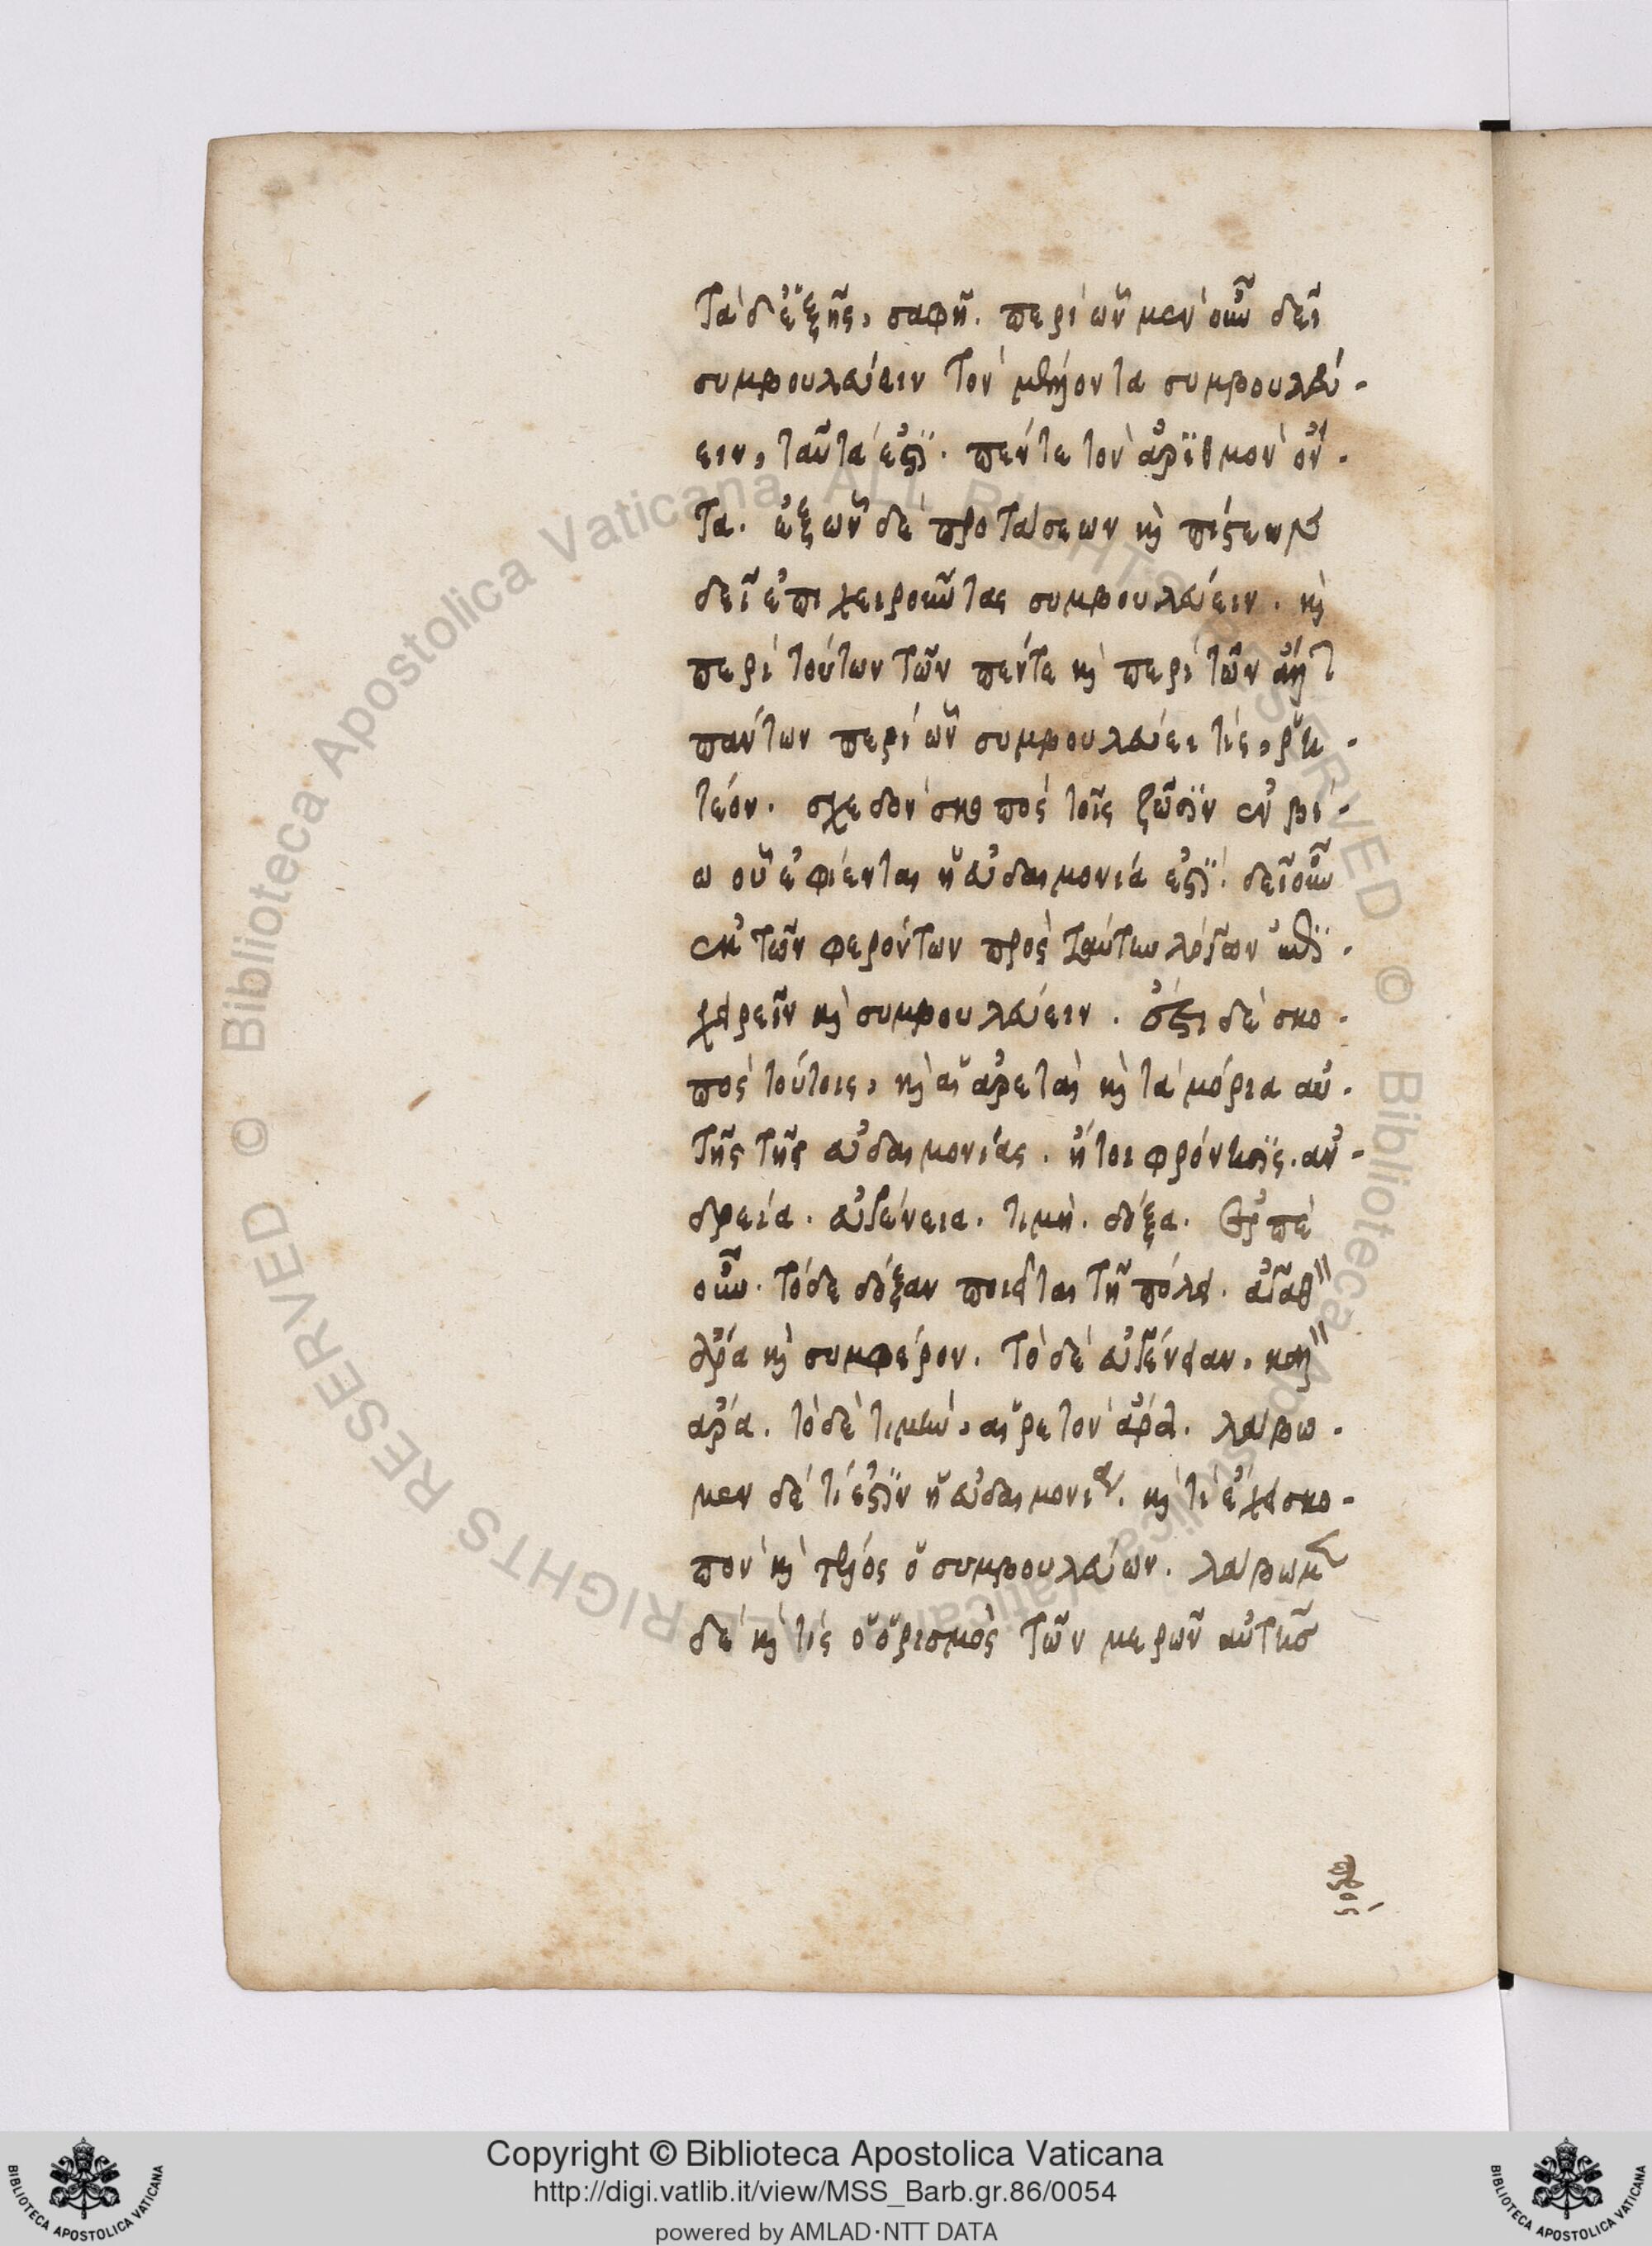 Τὰ δ' ἑξῆς, σαφῆ. περὶ ὧν μὲν οὖν δεῖ
συμβουλεύειν τὸν μέλλοντα συμβουλεύ-
ειν, ταῦτά ἐστι. πέντε τὸν ἀριθμὸν ὄν-
τα. ἐξ ὧν δὲ προτάσεων καὶ πίστεων
δεῖ ἐπιχειροῦντας συμβουλεύειν. καὶ
περὶ τούτων τῶν πέντε καὶ περὶ τῶν ἄλλ
πάντων περὶ ὧν συμβουλεύει τίς, ῥη-
τέον. σχεδὸν σκοπὸς τοῖς ζῶσιν ἐν βί-
ω οὗ ἐφίενται ἡ εὐδαιμονία ἐστί. δεῖ οὖν
ἐκ τῶν φερόντων πρὸς ταύτην λόγων ἐπι-
χειρεῖν καὶ συμβουλεύειν. ἔστι δὲ σκο-
πὸς τούτοις, καὶ αἱ ἀρεταὶ καὶ τὰ μόρια αὐ-
τῆς τῆς εὐδαιμονίας. ἤτοι φρόνησις. ἀν-
δρεία. εὐγένεια. τιμὴ. δόξα.
οὖν. τόδε δόξαν ποιεῖται τῇ πόλει. ἀγαθ
ἄρα καὶ συμφέρον. τὸ δὲ εὐγένειαν, καλ
ἄρα. τὸ δὲ τιμὴν, αἱρετὸν ἄρα. λάβω-
μεν δὲ τί ἐστιν ἡ εὐδαιμονία. καὶ τί ἔχει σκο-
πὸν καὶ τέλος ὁ συμβουλεύων. λάβωμεν
δὲ καὶ τίς ὁ ὁρισμὸς τῶν μερῶν αὐτῆς
© Biblioteca Apostolica Vaticana ALL RIGHTS RESERVED
© Biblioteca Apostolica Vaticana ALL RIGHTS RESERVED
Copyright © Biblioteca Apostolica Vaticana
http://digi.vatlib.it/view/MSS_Barb.gr.86/0054
powered by AMLAD·NTT DATA
BIBLIOTECA APOSTOLICA VATICANA
BIBLIOTECA APOSTOLICA VATICANA